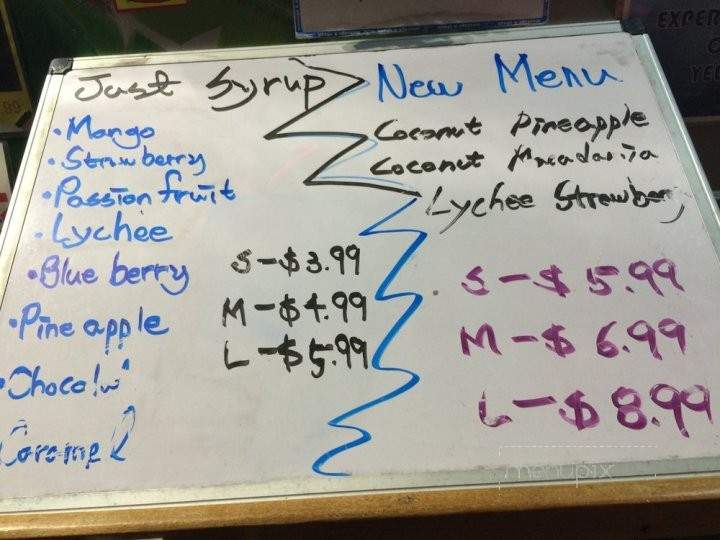 Just Syrup
• Mango
• Strawberry
• Passion fruit
• Lychee
• Blueberry
• Pineapple
S - $3.99
M - $4.99
L - $5.99
New Menu
Coconut Pineapple
Coconut
Lychee Strawberry
S - $5.99
M - $6.99
L - $8.99
menupix
.99